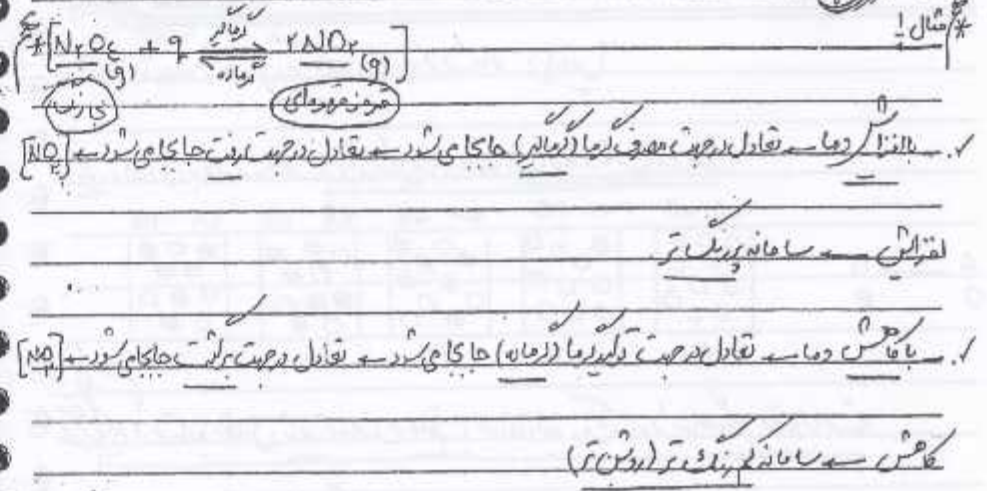 * مثال ۱:
* [N۲O۴ (g) + q ⇌ ۲NO۲ (g)]
گرماگیر
گرماده
بی رنگ
قهوه‌ای
✓. با افزایش دما ← تعادل در جهت مصرف گرما (گرماگیر) جابجا می‌شود ← تعادل در جهت رفت جابجا می‌شود ← [NO۲]
افزایش ← سامانه پررنگ تر.
✓. با کاهش دما ← تعادل در جهت تولید گرما (گرماده) جابجا می‌شود ← تعادل در جهت برگشت جابجا می‌شود ← [NO۲]
کاهش ← سامانه کم رنگ تر (روشن تر)